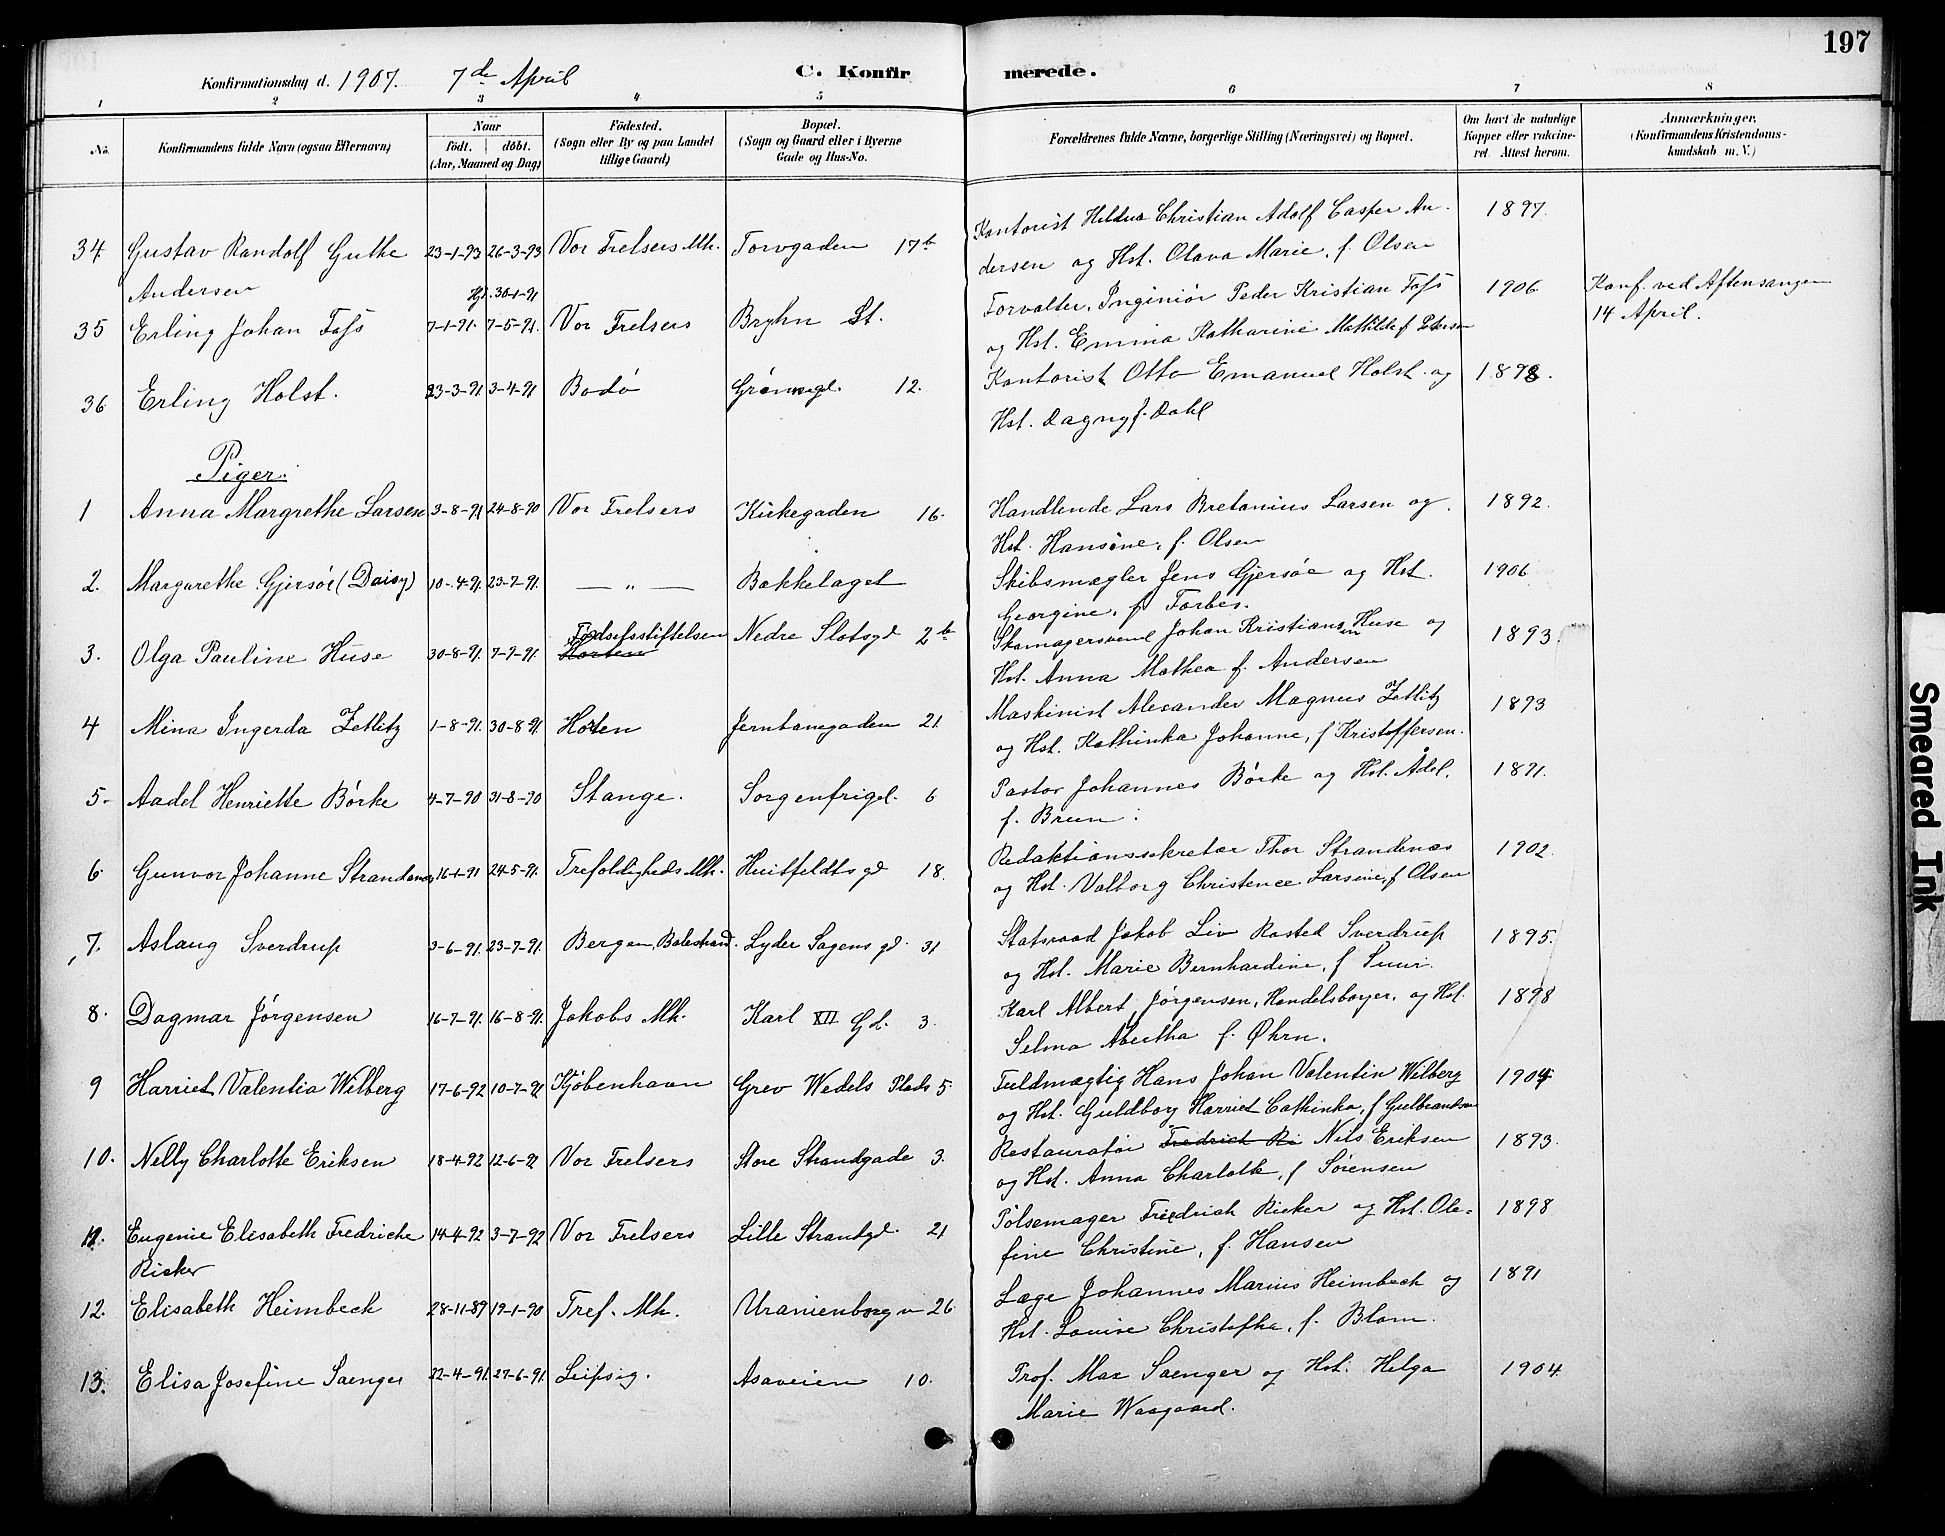 197
Konfirmationsdag d. 1907. 7de April C. Konfir merede.
1 2 3 4 5 6 7 8
No. Konfirmandens fulde Navn (ogsaa Efternavn) Naar født. døbt. (Aar, Maaned og Dag) Fødested. (Sogn eller By og paa Landet tillige Gaard) Bopæl. (Sogn og Gaard eller i Byerne Gade og Hus-No. Forældrenes fulde Navne, borgerlige Stilling (Næringsvei) og Bopæl. Om havt de naturlige Kopper eller vakcineret. Attest herom. Anmærkninger. (Konfirmandens Kristendomskundskab m. V.)
34 Gustav Randolf Guthe 23-1-93 26-3-93 Vor Frelsers Mh. Torvgaden 17b Kontorist Christian Adolf Casper An- 1897.
Andersen dersen og Hst. Olava Marie, f. Olsen
35 Erling Johan Foss 7-1-91. Hj. 30-1-91 7-5-91. Vor Frelsers Bryhn St. Forvalter, Inginiör Peder Kristian Foss 1906 Konf. ved Aftensangen
og Hst. Emma Katharine Mathilde f. Petersen 14 April.
36 Erling Holst. 23-3-91 3-4-91 Bodö Grönnegd. 12. Kontorist Otto Emanuel Holst og 1898.
Hst. Dagny f. Dahl
Piger:
1 Anna Margrethe Larsen 3-8-91 24-8-90 Vor Frelsers Kirkegaden 16. Handlende Lars Bretanius Larsen og 1892.
Hst. Hansine, f. Olsen
2. Margarethe Gjersöe (Daisy) 10-4-91. 23-7-91. — " — Bakkelaget Skibsmægler Jens Gjersöe og Hst. 1906
Georgine, f. Forbes.
3. Olga Pauline Huse 30-8-91. 7-9-91. Födselsstiftelsen Horten Nedre Slotsgd 2b Skomagersvend Johan Kristiansen Huse og 1893
Hst. Anna Mathea f. Andersen
4 Mina Ingerda Zetlitz 1-8-91. 30-8-91. Horten Jernbanegaden 21 Maskinist Alexander Magnus Zetlitz 1893
og Hst. Kathinka Johanne, f Kristoffersen.
5. Aadel Henriette Börke 4-7-90 31-8-90 Stange. Sorgenfrigd. 6 Pastor Johannes Börke og Hst. Ådel, 1891.
f. Bruun.
6. Gunvor Johanne Strandenæs 16-1-91 24-5-91. Trefoldigheds Mh. Huitfeldts gd 18. Redaktionssekretær Thor Strandenæs 1902
og Hst. Valborg Christence Larsine, f Olsen
7. Aslaug Sverdrup 3-6-91. 23-7-91. Bergen, Balestrand. Lyder Sagens gd. 31 Statsraad Jakob Liv Rosted Sverdrup 1895.
og Hst. Marie Bernhardine, f
8. Dagmar Jörgensen 16-7-91. 16-8-91. Jakobs Mh. Karl XII Gd. 3. Karl Albert Jörgensen, Handelsborger, og Hst. 1898
Selma f. Øhrn.
9 Harriet Valentia Wilberg 17-6-92 10-7-92 Kjöbenhavn Grev Wedels Plads 5. Fuldmægtig Hans Johan Valentin Wilberg 1904
og Hst. Guldborg Harriet Cathinka, f Gulbrandsen
10. Nelly Charlotte Eriksen 18-4-92 12-6-92 Vor Frelsers Store Strandgade 3. Restauratör Fredrich Ri Nils Eriksen 1893.
og Hst. Anna Charlotte, f Sörensen
11. Eugenie Elisabeth Fredricke 14-4-92 3-7-92 Vor Frelsers Lille Strandgd. 21 Pölsemager Friedrich Ricker og Hst. Ole- 1898
Ricker fine Christine, f. Hansen
12. Elisabeth Heimbeck 28-11-89 19-1-90 Tref. Mh. Uranienborg v 26 Læge Johannes Marius Heimbeck og 1891
Hst. Louise Christofka, f. Blom.
13. Elisa Josefine Saenger 22-4-91. 27-6-91. Leipsig. Asaveien 10. Prof. Max Saenger og Hst. Helga 1904
Marie Waagaard.
Smeared Ink